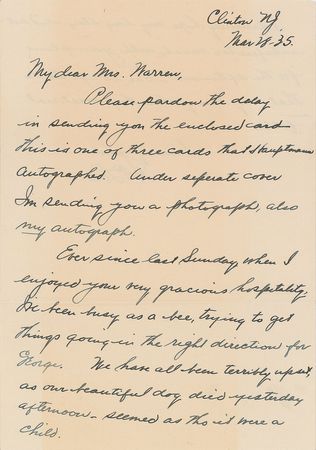 Clinton NJ
Mar 28 '35.
My dear Mrs. Warren,
Please pardon the delay
in sending you the enclosed card
this is one of three cards that Hauptmann
Autographed. Under seperate cover
Im sending you a photograph, also
my autograph.
Ever since last Sunday, when I
enjoyed your very gracious hospitality,
I've been busy as a bee, trying to get
things going in the right direction for
George. We have all been terribly upset,
as our beautiful dog died yesterday
afternoon - seemed as tho it were a
child.